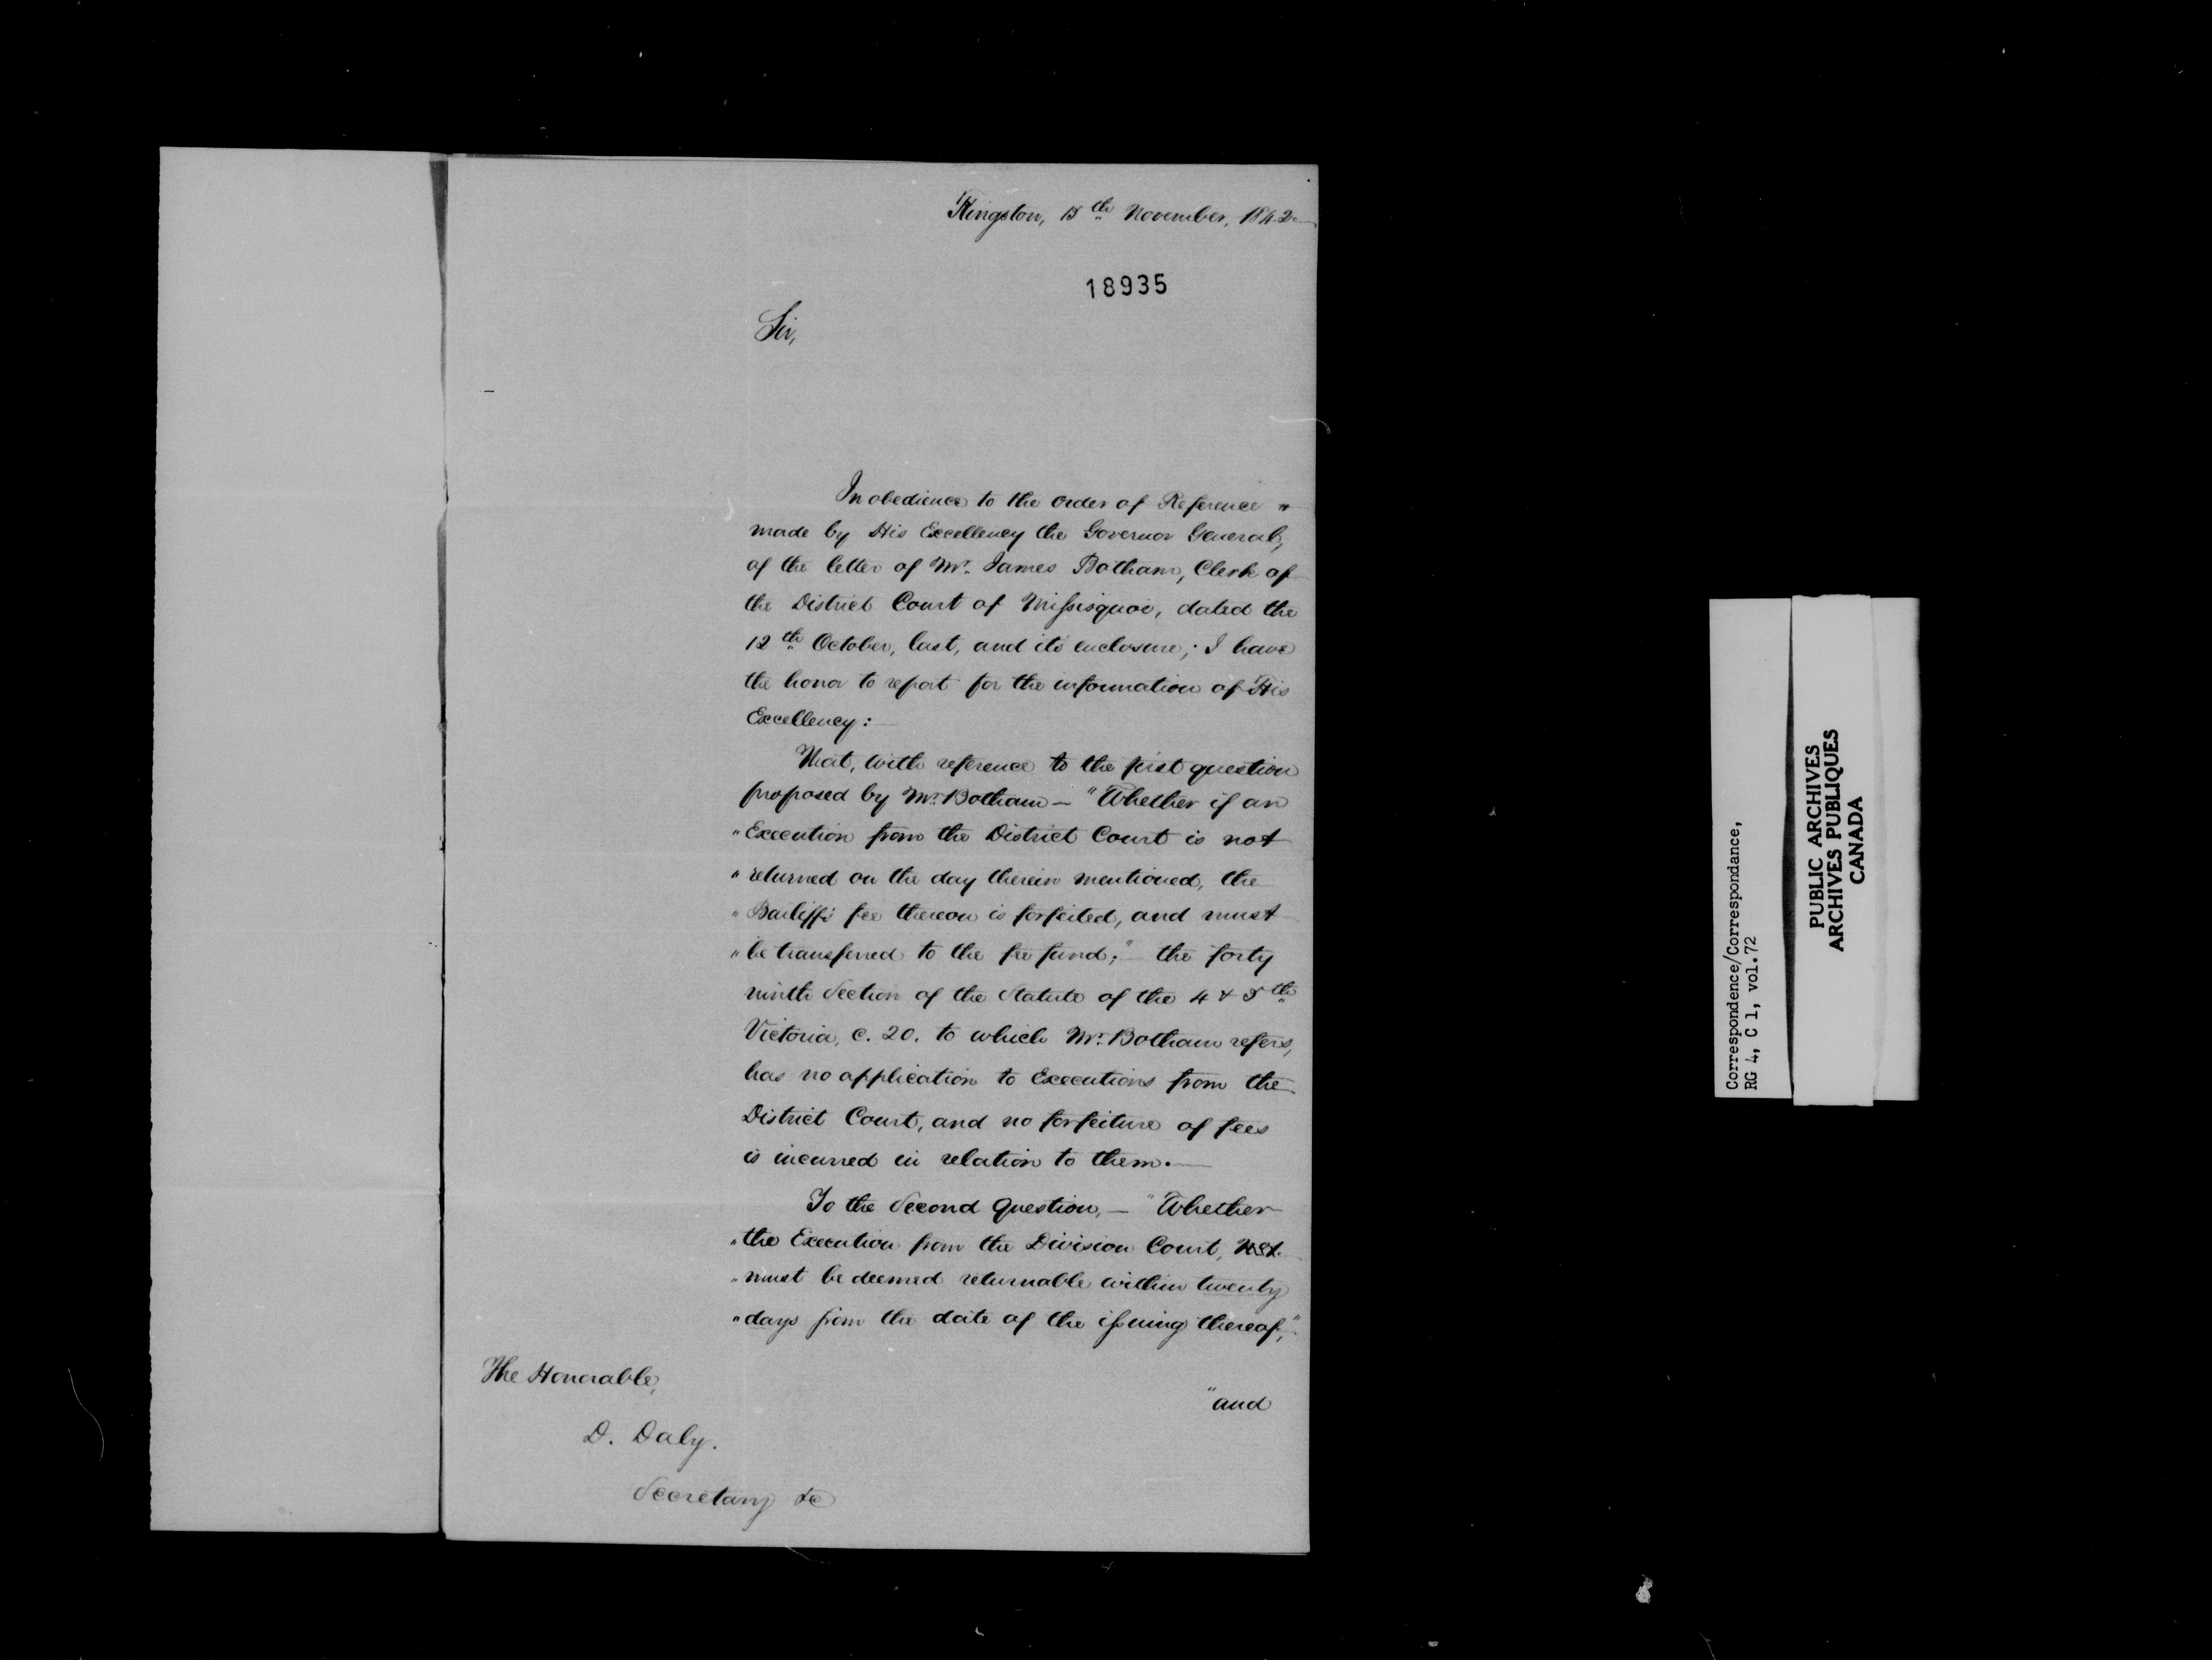 Kingston, 15th November, 1842
18935
Sir,
In obedience to the order of Reference
made by His Excellency the Governor General,
of the letter of Mr. James Botham, Clerk of
the District Court of Missisquoi, dated the
12th October, last, and its enclosure; I have
the honor to report for the information of His
Excellency:—
That, with reference to the first question
proposed by Mr. Botham — "Whether if an
"Execution from the District Court is not
"returned on the day therein mentioned, the
"Bailiff's fee thereon is forfeited, and must
"be transferred to the fee fund;" — the forty
ninth Section of the Statute of the 4 & 5th
Victoria, c. 20. to which Mr. Botham refers,
has no application to Executions from the
District Court, and no forfeiture of fees
is incurred in relation to them.—
To the Second Question, — "Whether
"the Execution from the Division Court,
"must be deemed returnable within twenty
"days from the date of the issuing thereof,"
"and
The Honorable,
D. Daly.
Secretary &c
Correspondence/Correspondance,
RG 4, C 1, vol.72
PUBLIC ARCHIVES
ARCHIVES PUBLIQUES
CANADA